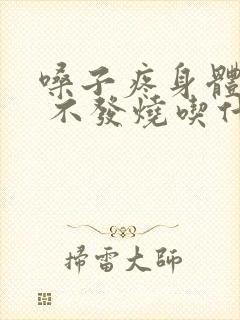 嗓子疼身體
不發燒喫什
掃雷大師